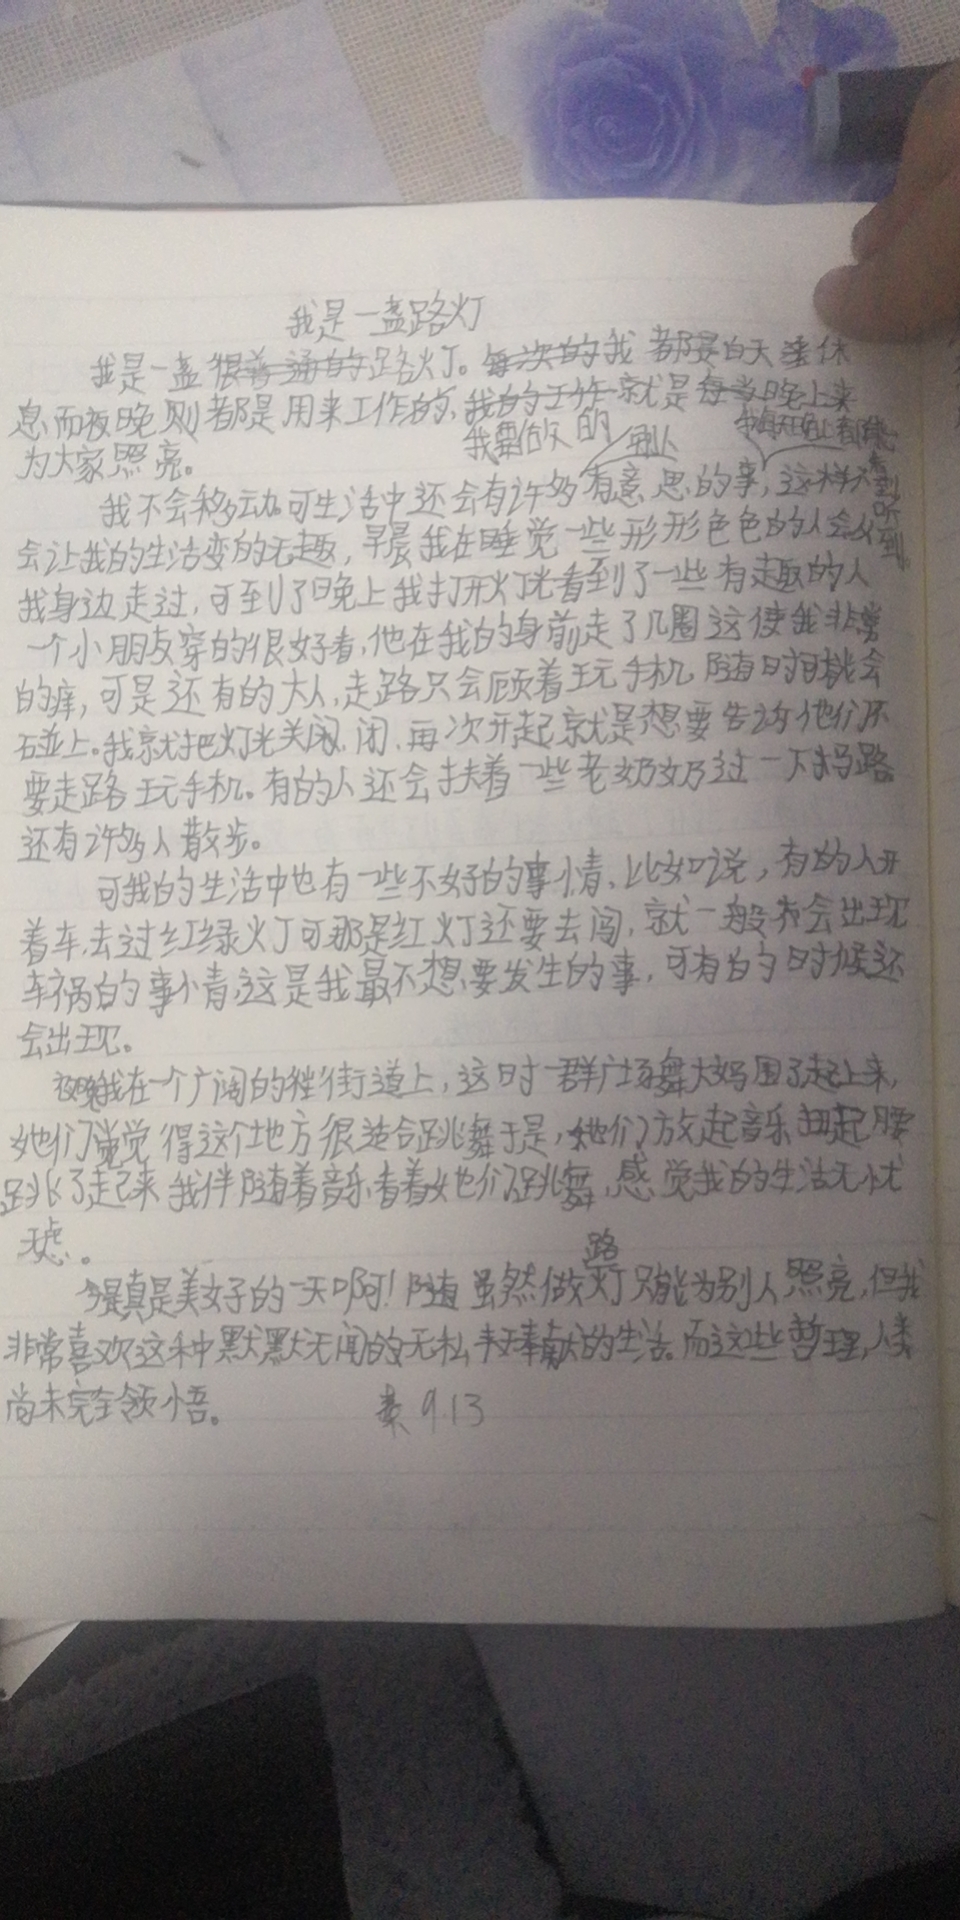 我是一盏路灯
我是一盏很普通的路灯。每次的我都是白天睡休
息,而夜晚则都是用来工作的,我的工作就是每当晚上来
我要做的
为大家照亮。
我不会移动。可生活中还会有许多有意思的事,这样才
会让我的生活变的无趣,早晨我在睡觉一些形形色色的人会从
我身边走过,可到了晚上我打开灯光看到了一些有趣的人
一个小朋友穿的很好看,他在我的身前走了几圈这使我非常
的痒,可是还有的大人,走路只会顾着玩手机随时都会
碰上。我就把灯光关闭,闭,再次开起就是想要告诉他们不
要走路玩手机。有的人还会扶着一些老奶奶过一下马路
还有许多人散步。
可我的生活中也有一些不好的事情,比如说,有的人开
着车,去过红绿灯可那是红灯还要去闯,就一般都会出现
车祸的事情,这是我最不想要发生的事,可有的时候还
会出现。
夜晚我在一个广阔的街道上,这时一群广场舞大妈围了起来,
她们觉得这个地方很适合跳舞于是,她们放起音乐扭起腰
跳了起来我伴随着音乐看着她们跳舞,感觉我的生活无忧
无虑。
路
今天真是美好的一天啊!随虽然做灯只能为别人照亮,但我
非常喜欢这种默默无闻的无私奉献的生活。而这些哲理,人类
尚未完全领悟。
9.13